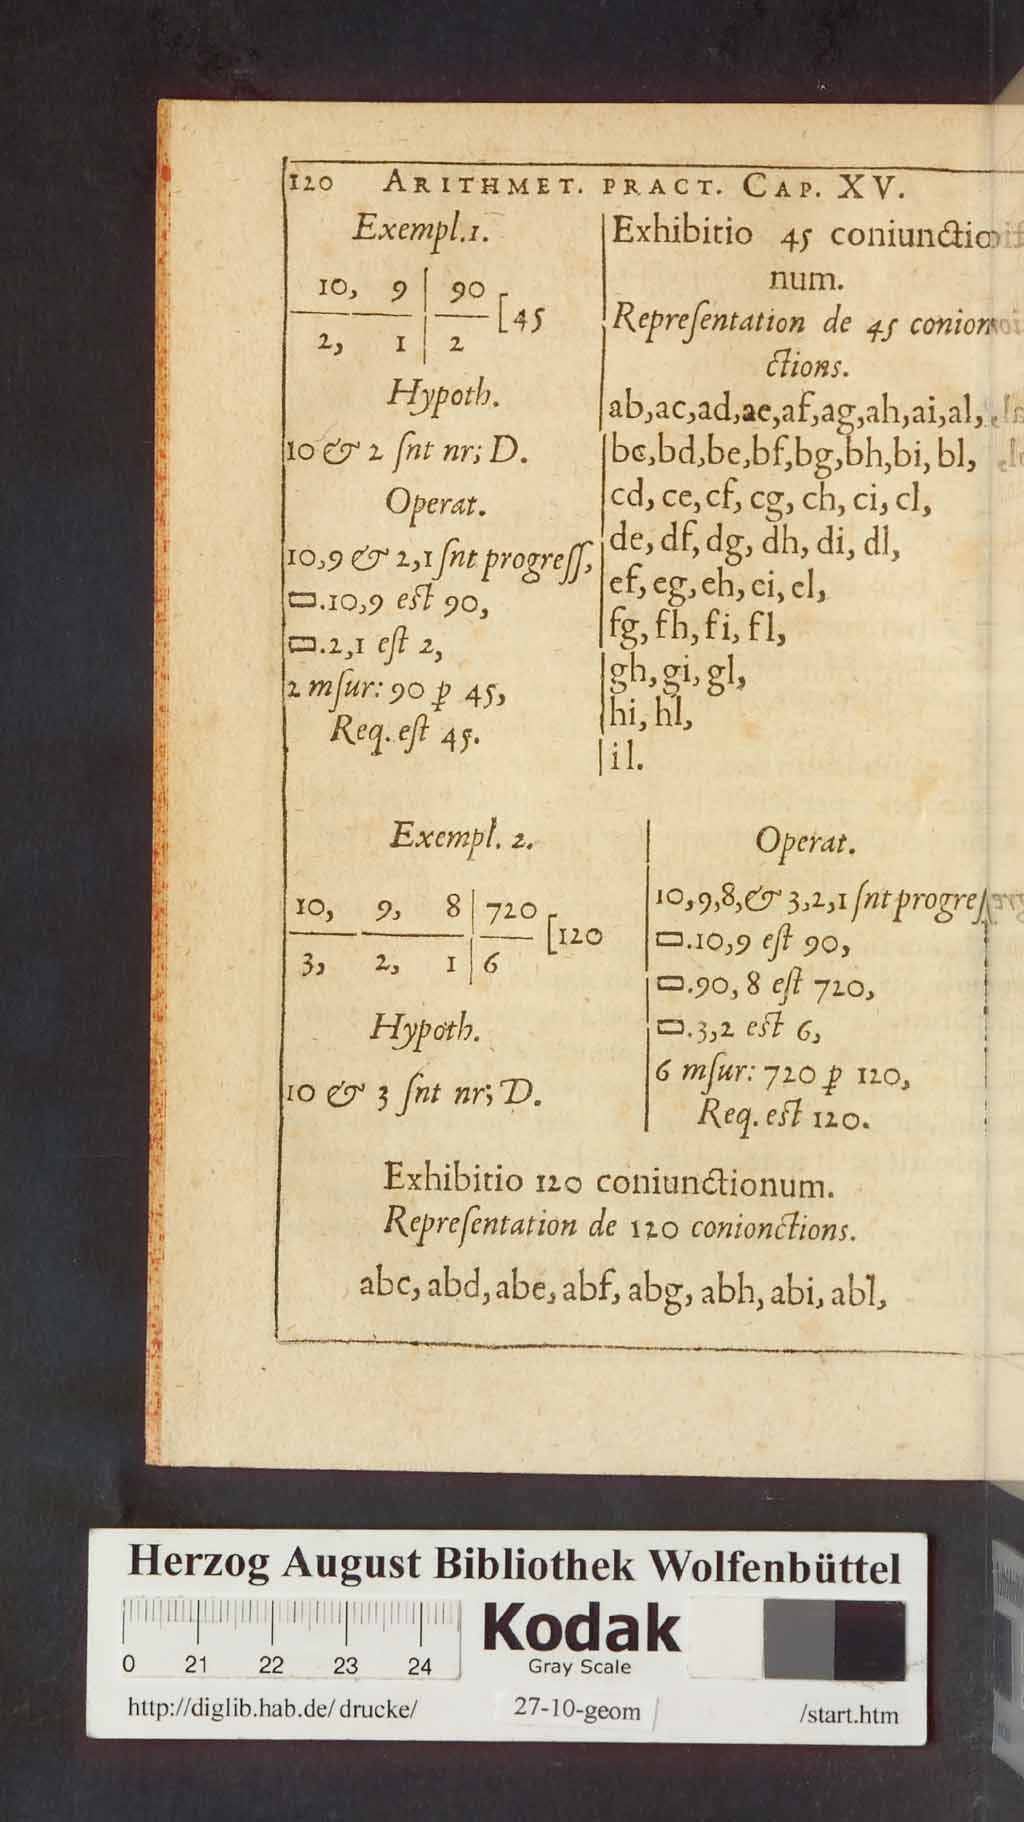 120 ARITHMET. PRACT. CAP. XV.
Exempl. 1.
10, 9 | 90
2, 1 | 2 [45
Hypoth.
10 & 2 ſnt nr; D.
Operat.
10,9 & 2,1 ſnt progreſſ,
▭.10,9 est 90,
▭.2,1 eſt 2,
2 mſur: 90 ꝑ 45,
Req. eſt 45.
Exhibitio 45 coniunctio
num.
Repreſentation de 45 conion
ctions.
ab,ac,ad,ae,af,ag,ah,ai,al,
bc,bd,be,bf,bg,bh,bi, bl,
cd, ce, cf, cg, ch, ci, cl,
de, df, dg, dh, di, dl,
ef, eg, eh, ei, el,
fg, fh, fi, fl,
gh, gi, gl,
hi, hl,
il.
Exempl. 2.
10, 9, 8 | 720
3, 2, 1 | 6 [120
Hypoth.
10 & 3 ſnt nr; D.
Operat.
10,9,8,& 3,2,1 ſnt progreſ
▭.10,9 eſt 90,
▭.90, 8 eſt 720,
▭.3,2 est 6,
6 mſur: 720 ꝑ 120,
Req. est 120.
Exhibitio 120 coniunctionum.
Repreſentation de 120 conionctions.
abc, abd, abe, abf, abg, abh, abi, abl,
Herzog August Bibliothek Wolfenbüttel
0 21 22 23 24
Kodak
Gray Scale
http://diglib.hab.de/drucke/ 27-10-geom /start.htm